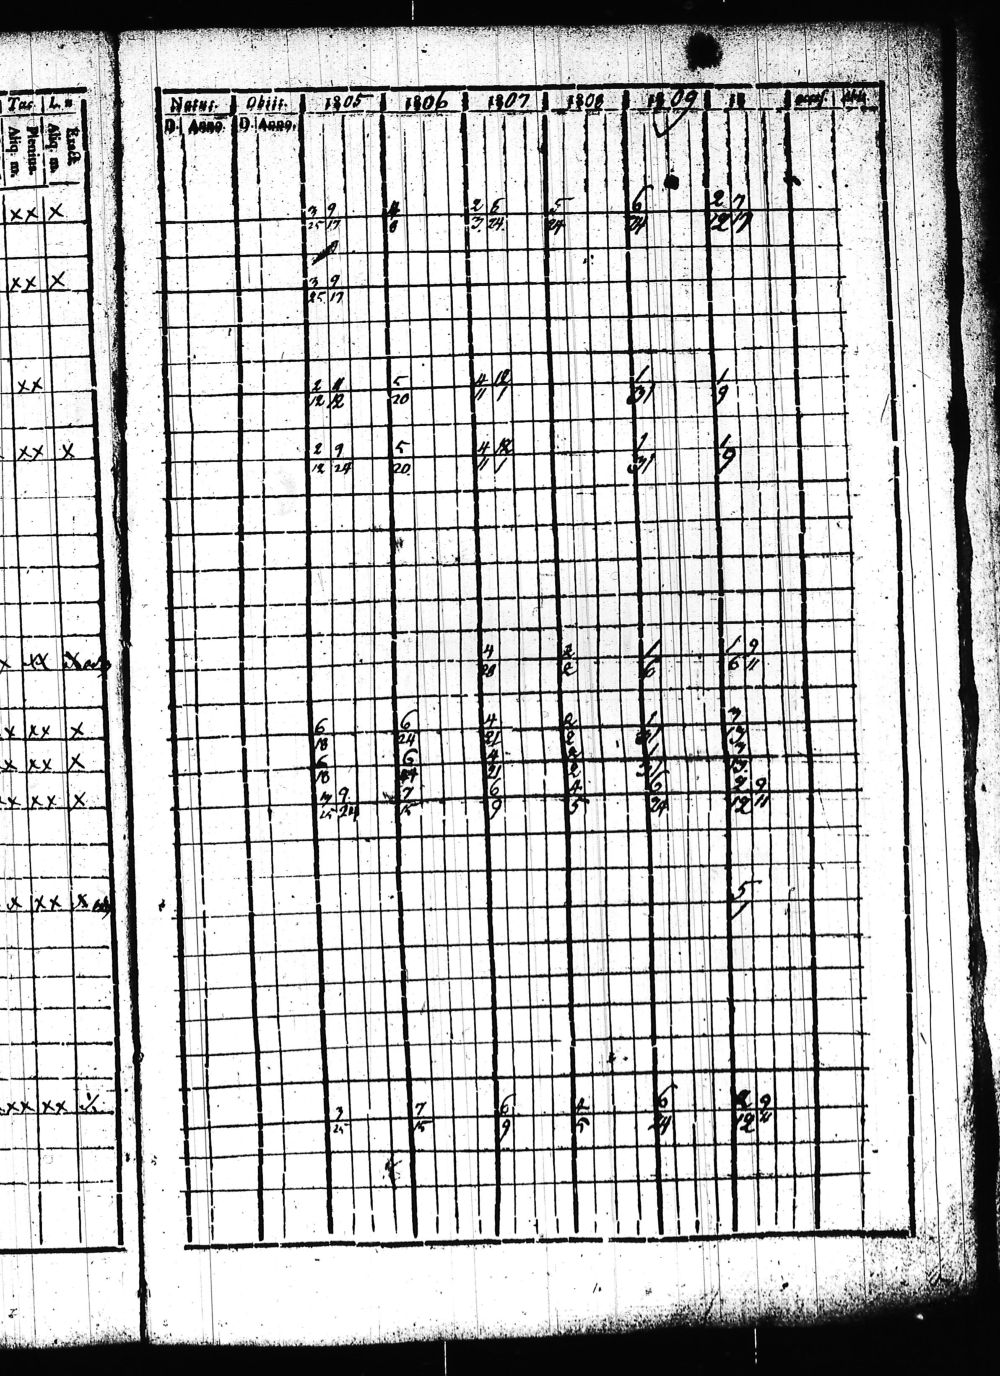 Tac. L. n
Natus. Obiit. 1805 1806 1807 1808 1809 18
Aliq. m. Plenius. Aliq. m. Exacte
D. Anno. D. Anno.
xx x 3 9 2 6 5 6 2 7
25 17 8 3 24 24 24 12 17
xx x 3 9
25 17
xx 2 11 5 4 12 1 1
12 12 20 11 1 31 9
xx x 2 9 5 4 12 1 1
12 24 20 11 1 31 9
x xx x 4 2 1 1 9
28 2 6 6 11
x xx x 6 6 4 2 1 3
18 24 21 2 31 13
x xx x 6 6 4 2 1 3
18 24 21 2 31 13
xx xx x 3 9 7 6 4 6 2 9
25 24 15 9 5 24 12 11
x xx x 5
1
xx xx 3 7 6 4 6 2 9
25 15 9 5 24 12 11